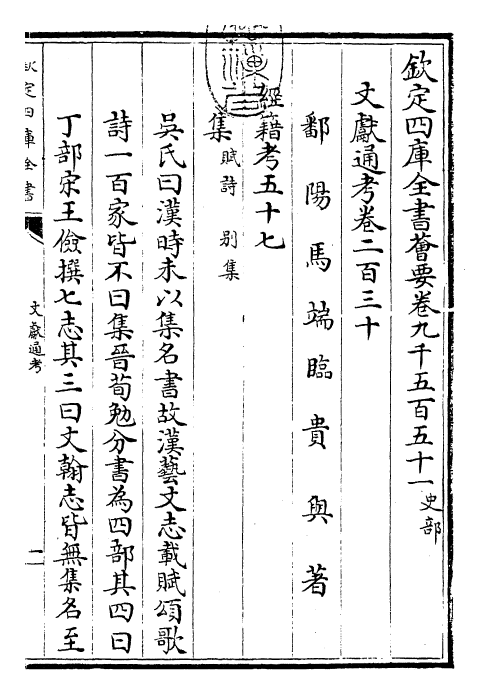 欽定四庫全書薈要卷九千五百五十一史部
文獻通考卷二百三十
鄱陽馬端臨貴與著
經籍考五十七
集賦詩 別集
吳氏曰漢時未以集名書故漢藝文志載賦頌歌
詩一百家皆不曰集晉荀勉分書為四部其四曰
丁部宋王儉撰七志其三曰文翰志皆無集名至
欽定四庫全書
文獻通考
一